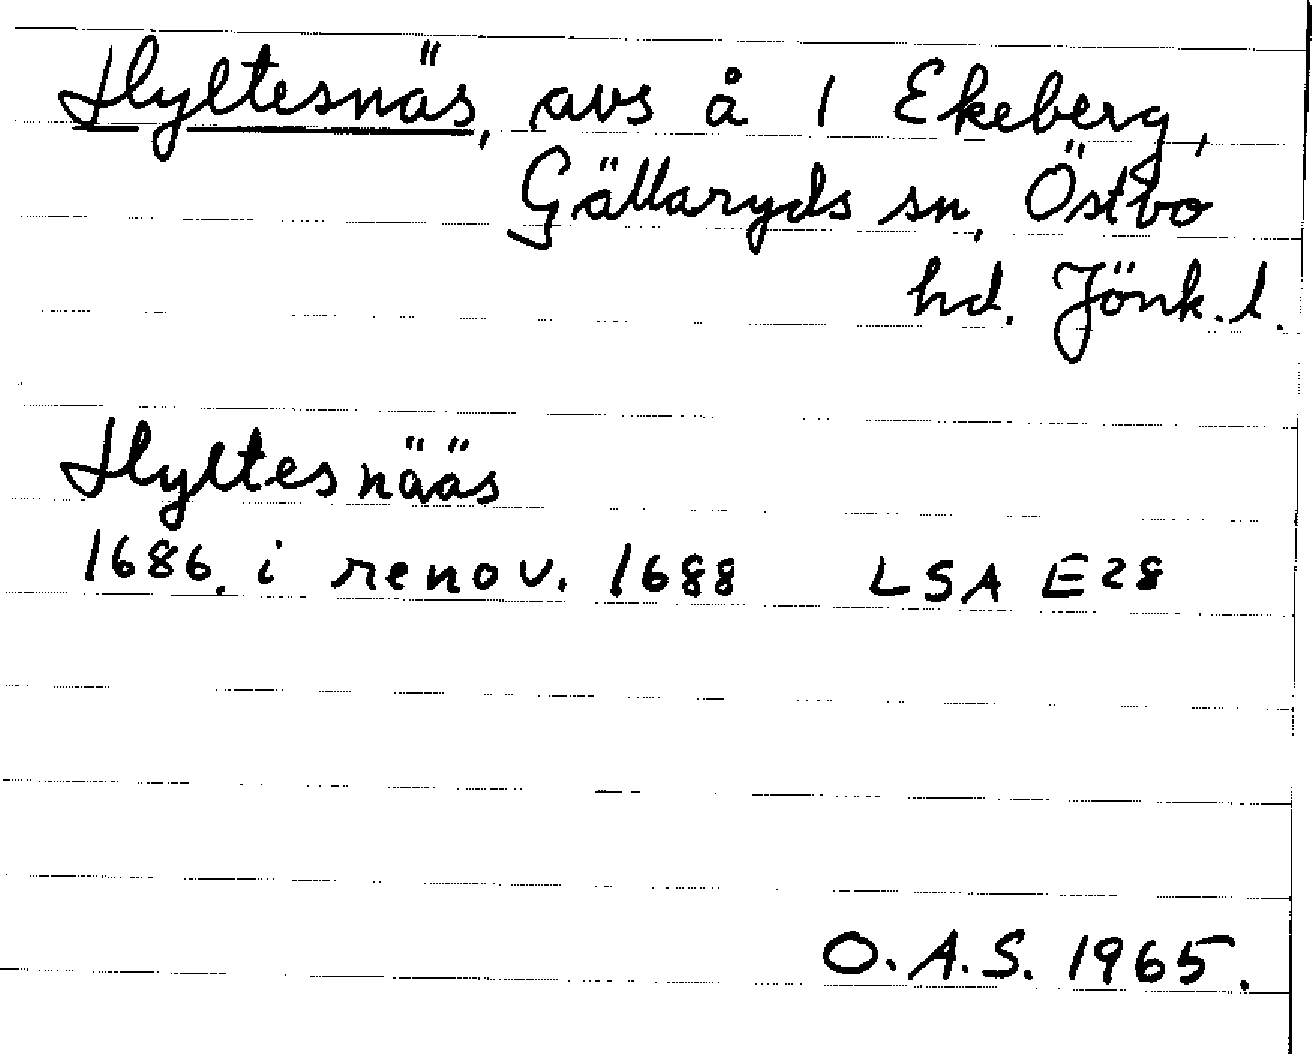 Hyltesnäs, avs å 1 Ekeberg,
Gällaryds sn, Östbo
hd. Jönk. l.
Hyltesnääs
1686. i renov. 1688 LSA E28
O.A.S. 1965.